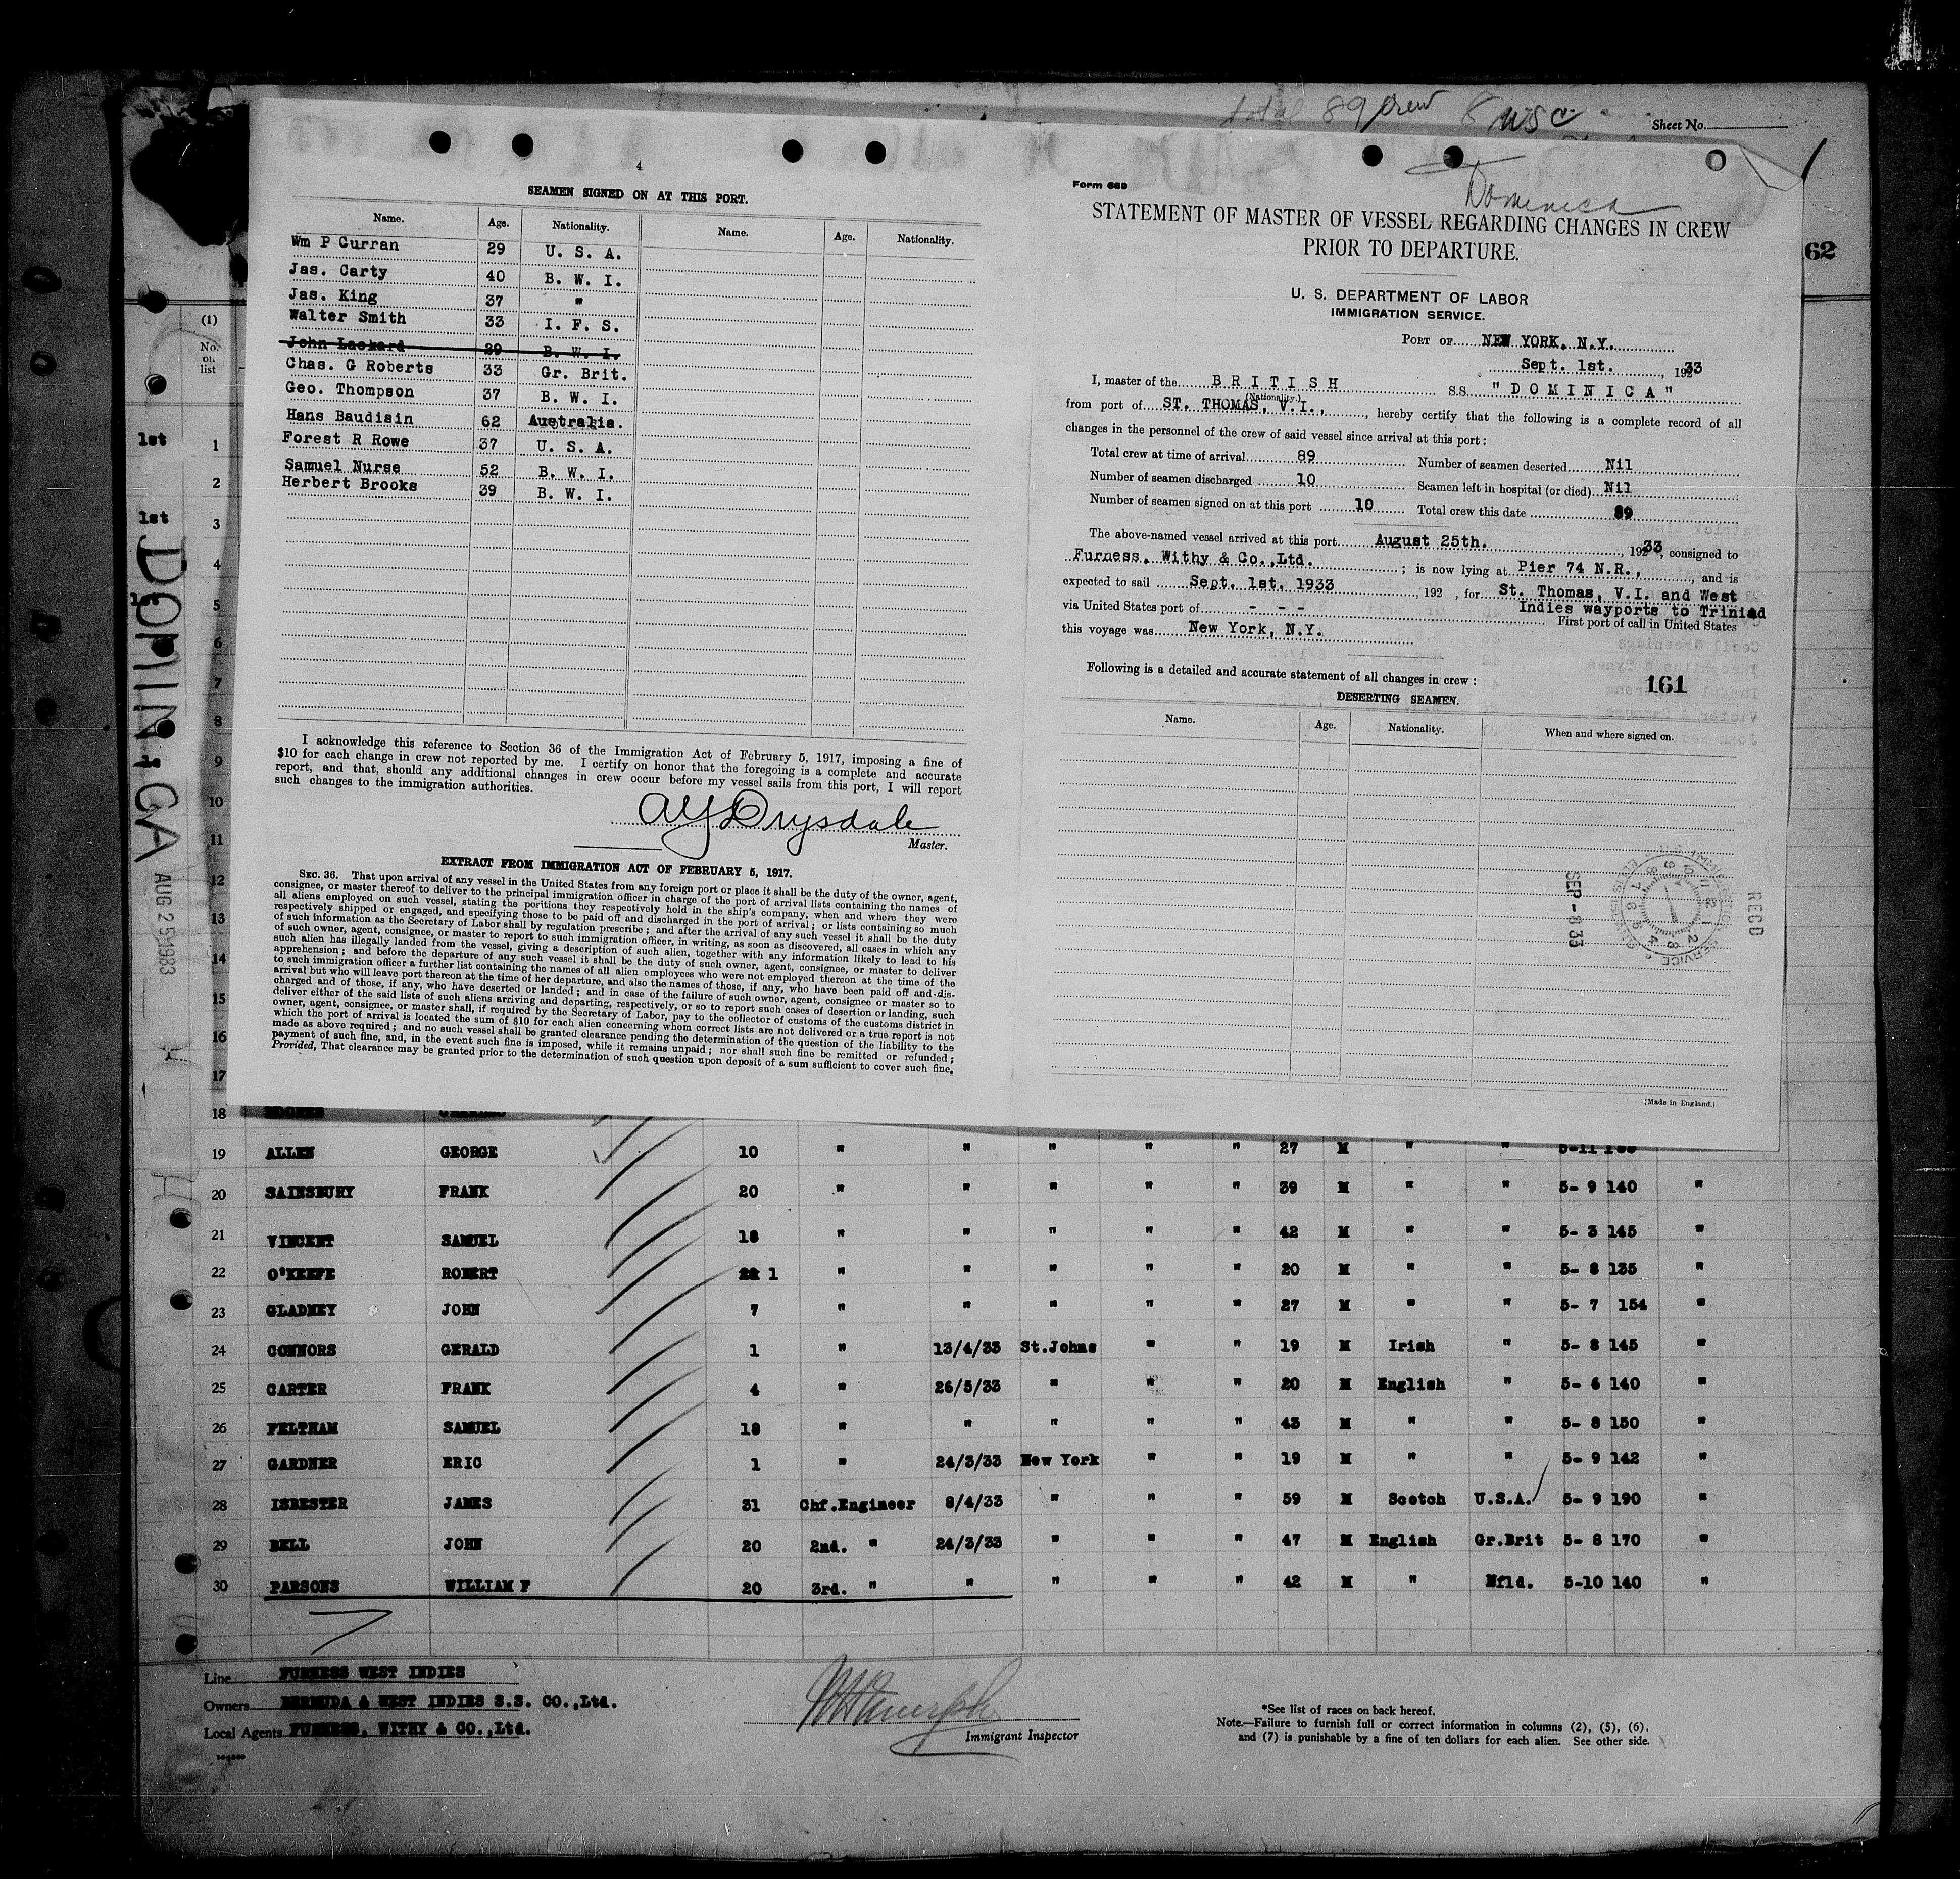 total 89 crew 8 USC
Sheet No.
4
SEAMEN SIGNED ON AT THIS PORT.
Name. Age. Nationality. Name. Age. Nationality.
Wm P Curran 29 U. S. A.
Jas. Carty 40 B. W. I.
Jas. King 37 "
Walter Smith 33 I. F. S.
John Lackard 29 B. W. I.
Chas. G Roberts 33 Gr. Brit.
Geo. Thompson 37 B. W. I.
Hans Baudisin 62 Australia.
Forest R Rowe 37 U. S. A.
Samuel Nurse 52 B. W. I.
Herbert Brooks 39 B. W. I.
I acknowledge this reference to Section 36 of the Immigration Act of February 5, 1917, imposing a fine of
$10 for each change in crew not reported by me. I certify on honor that the foregoing is a complete and accurate
report, and that, should any additional changes in crew occur before my vessel sails from this port, I will report
such changes to the immigration authorities.
AY Drysdale
Master.
EXTRACT FROM IMMIGRATION ACT OF FEBRUARY 5, 1917.
SEC. 36. That upon arrival of any vessel in the United States from any foreign port or place it shall be the duty of the owner, agent,
consignee, or master thereof to deliver to the principal immigration officer in charge of the port of arrival lists containing the names of
all aliens employed on such vessel, stating the poritions they respectively hold in the ship's company, when and where they were
respectively shipped or engaged, and specifying those to be paid off and discharged in the port of arrival; or lists containing so much
of such information as the Secretary of Labor shall by regulation prescribe; and after the arrival of any such vessel it shall be the duty
of such owner, agent, consignee, or master to report to such immigration officer, in writing, as soon as discovered, all cases in which any
such alien has illegally landed from the vessel, giving a description of such alien, together with any information likely to lead to his
apprehension; and before the departure of any such vessel it shall be the duty of such owner, agent, consignee, or master to deliver
to such immigration officer a further list containing the names of all alien employees who were not employed thereon at the time of the
arrival but who will leave port thereon at the time of her departure, and also the names of those, if any, who have been paid off and dis-
charged and of those, if any, who have deserted or landed; and in case of the failure of such owner, agent, consignee or master so to
deliver either of the said lists of such aliens arriving and departing, respectively, or so to report such cases of desertion or landing, such
owner, agent, consignee, or master shall, if required by the Secretary of Labor, pay to the collector of customs of the customs district in
which the port of arrival is located the sum of $10 for each alien concerning whom correct lists are not delivered or a true report is not
made as above required; and no such vessel shall be granted clearance pending the determination of the question of the liability to the
payment of such fine, and, in the event such fine is imposed, while it remains unpaid; nor shall such fine be remitted or refunded;
Provided, That clearance may be granted prior to the determination of such question upon deposit of a sum sufficient to cover such fine.
Form 689
Dominica
STATEMENT OF MASTER OF VESSEL REGARDING CHANGES IN CREW
PRIOR TO DEPARTURE.
U. S. DEPARTMENT OF LABOR
IMMIGRATION SERVICE.
PORT OF NEW YORK, N.Y.
Sept. 1st. , 19233
I, master of the BRITISH S.S. "DOMINICA"
(Nationality.)
from port of ST. THOMAS, V.I., , hereby certify that the following is a complete record of all
changes in the personnel of the crew of said vessel since arrival at this port:
Total crew at time of arrival 89 Number of seamen deserted Nil
Number of seamen discharged 10 Seamen left in hospital (or died) Nil
Number of seamen signed on at this port 10 Total crew this date 89
The above-named vessel arrived at this port August 25th. , 19233, consigned to
Furness, Withy & Co.,Ltd. ; is now lying at Pier 74 N.R., , and is
expected to sail Sept. 1st. 1933 , 192 , for St. Thomas, V.I. and West
via United States port of - - - Indies wayports to Trinidad
First port of call in United States
this voyage was New York, N.Y.
Following is a detailed and accurate statement of all changes in crew:
161
DESERTING SEAMEN.
Name. Age. Nationality. When and where signed on.
RECD
SEP -8 33
(Made in England.)
62
(1)
No. on list
DOMINICA
AUG 25 1933
1st 1
2
1st 3
4
5
6
7
8
9
10
11
12
13
14
15
16
17
18
19 ALLEN GEORGE 10 " " " " " 27 M " " 5-11
20 SAINSBURY FRANK 20 " " " " " 39 M " " 5- 9 140 "
21 VINCENT SAMUEL 18 " " " " " 42 M " " 5- 3 145 "
22 O'KEEFE ROBERT 1 " " " " " 20 M " " 5- 8 135 "
23 GLADNEY JOHN 7 " " " " " 27 M " " 5- 7 154 "
24 CONNORS GERALD 1 " 13/4/33 St.Johns " " 19 M Irish " 5- 8 145 "
25 CARTER FRANK 4 " 26/5/33 " " " 20 M English " 5- 6 140 "
26 FELTHAM SAMUEL 18 " " " " " 43 M " " 5- 8 150 "
27 GARDNER ERIC 1 " 24/3/33 New York " " 19 M " " 5- 9 142 "
28 ISBESTER JAMES 31 Chf.Engineer 8/4/33 " " " 59 M Scotch U.S.A. 5- 9 190 "
29 BELL JOHN 20 2nd. " 24/3/33 " " " 47 M English Gr.Brit 5- 8 170 "
30 PARSONS WILLIAM F 20 3rd. " " " " " 42 M " Nfld. 5-10 140 "
Line FURNESS WEST INDIES
Owners BERMUDA & WEST INDIES S.S. CO.,Ltd.
Local Agents FURNESS, WITHY & CO.,Ltd.
Immigrant Inspector
*See list of races on back hereof.
Note.—Failure to furnish full or correct information in columns (2), (5), (6),
and (7) is punishable by a fine of ten dollars for each alien. See other side.